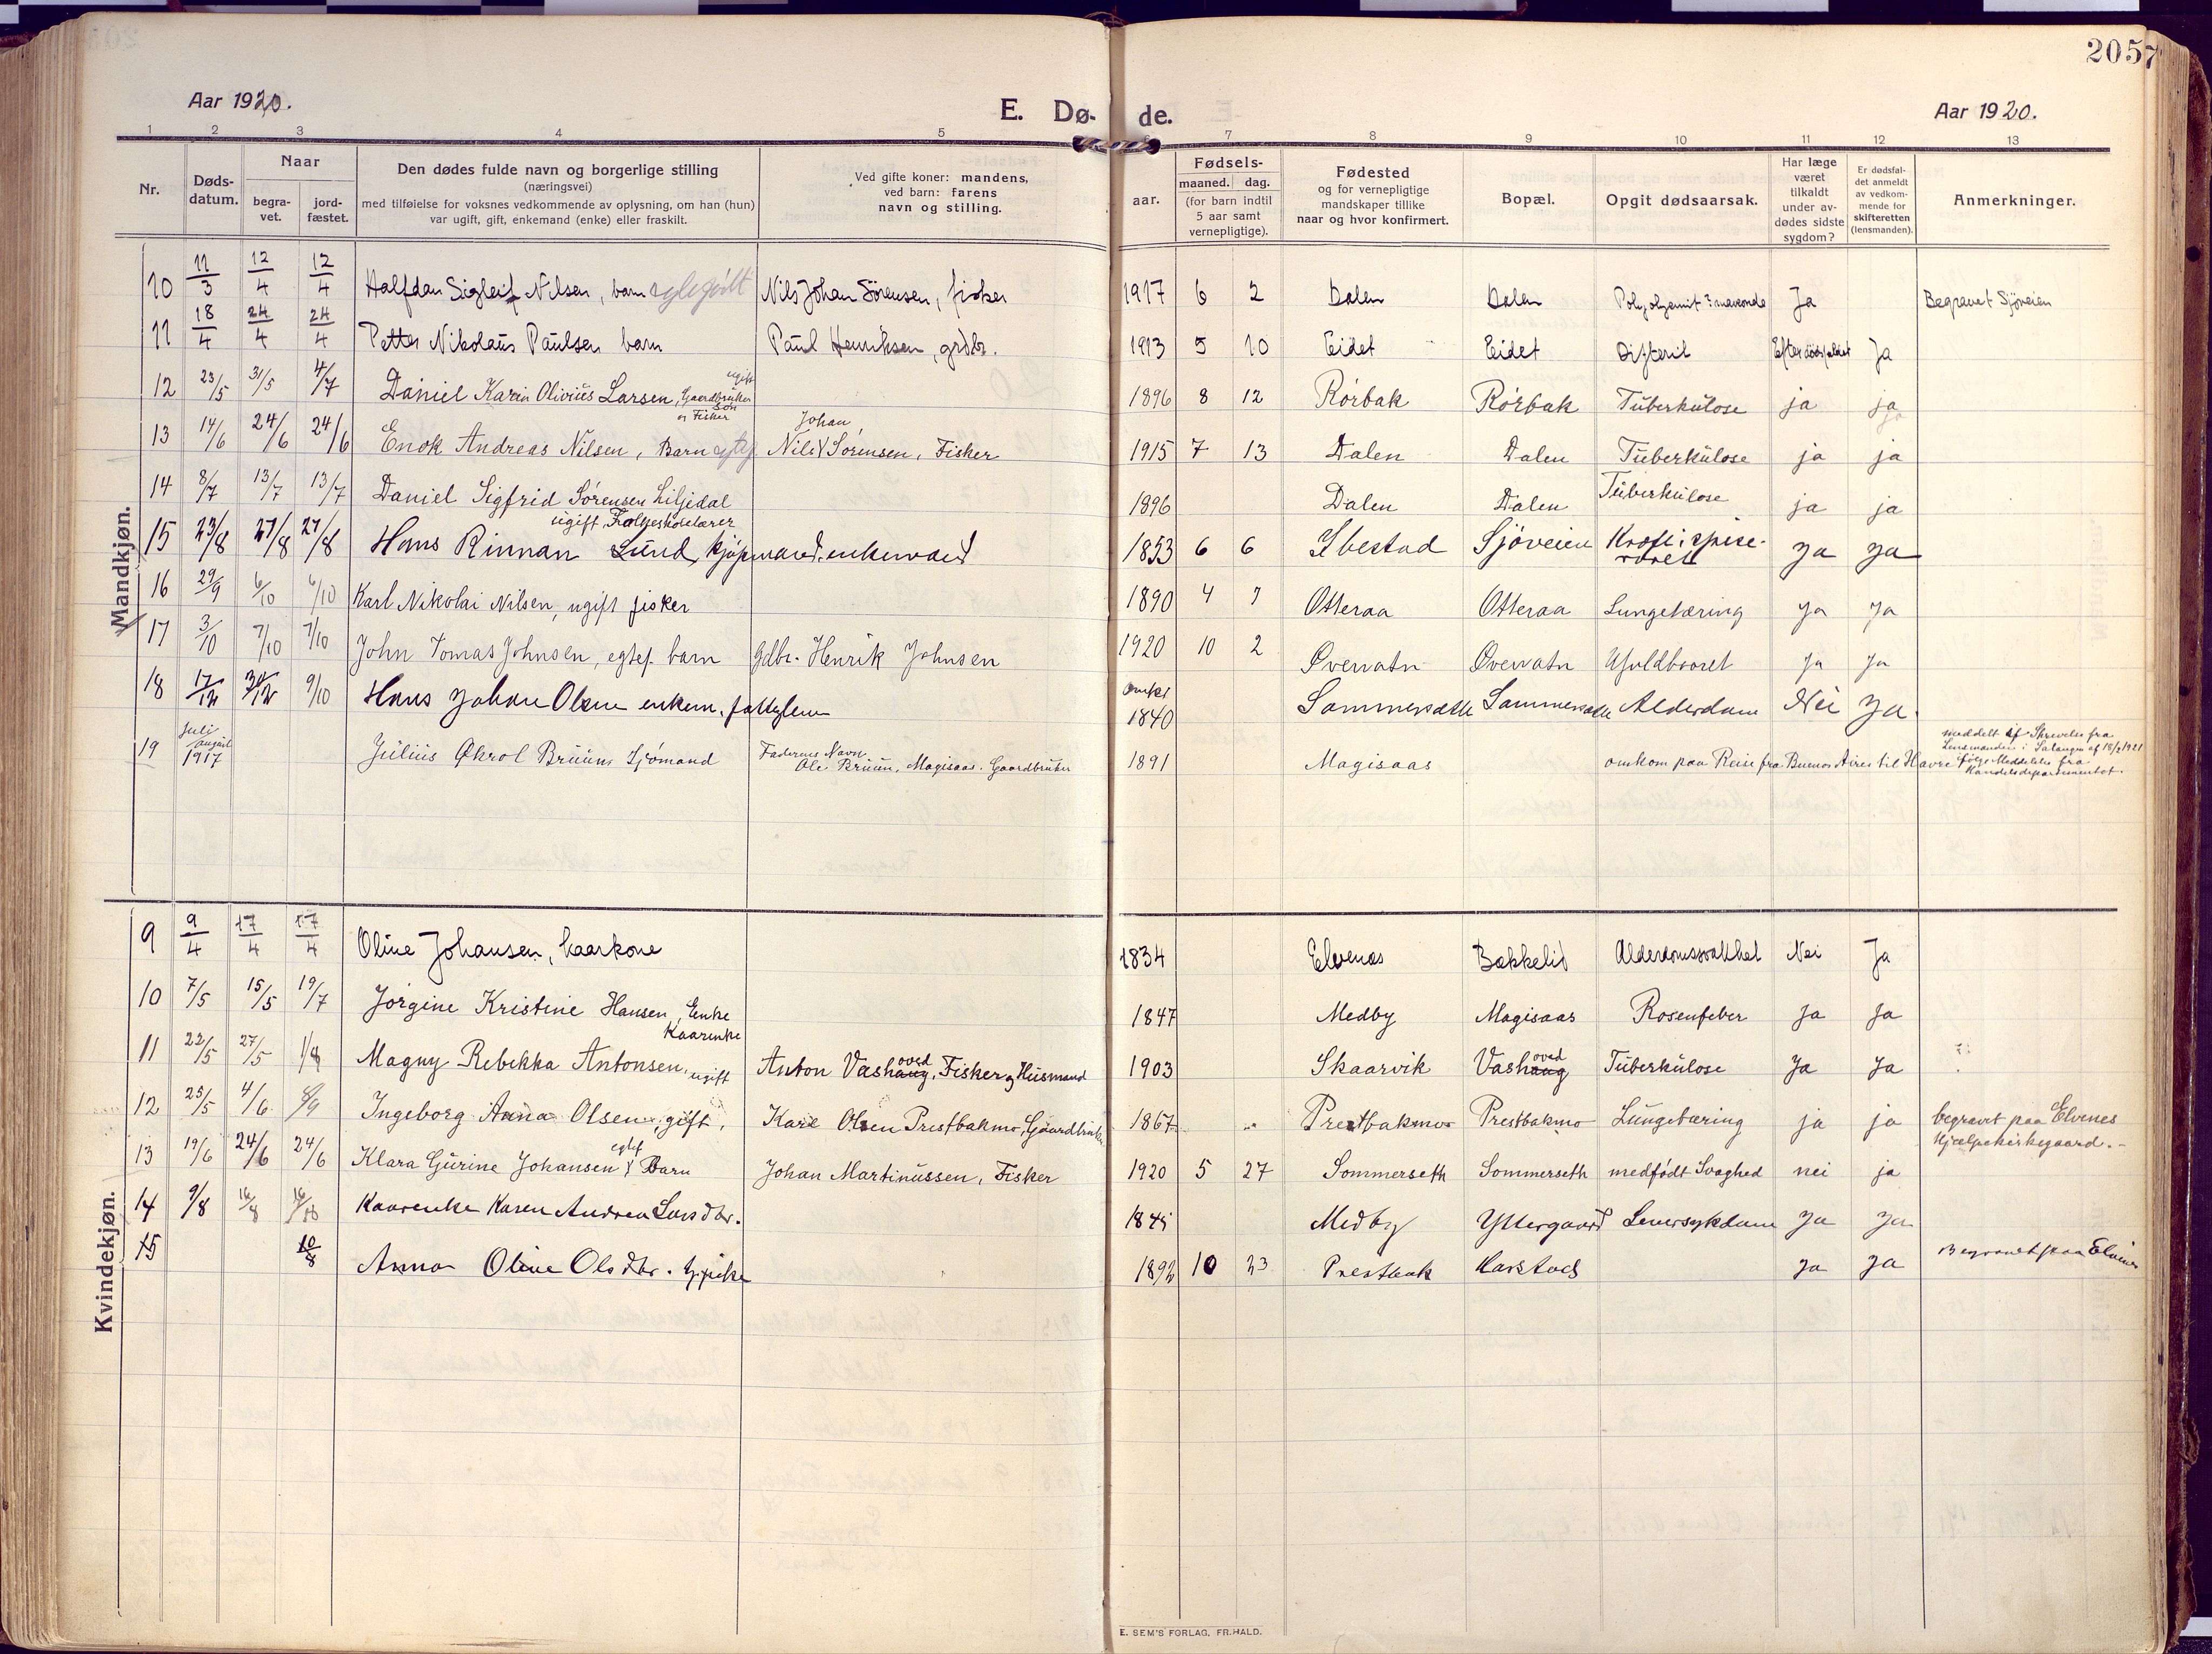 2057
Aar 1920.
E. Dø-
de.
Aar 1920.
1 2 3 4 5 7 8 9 10 11 12 13
Nr.
Døds-
datum.
Naar
begra-
vet.
jord-
fæstet.
Den dødes fulde navn og borgerlige stilling
(næringsvei)
med tilføielse for voksnes vedkommende av oplysning, om han (hun)
var ugift, gift, enkemand (enke) eller fraskilt.
Ved gifte koner: mandens,
ved barn: farens
navn og stilling.
Fødsels-
aar.
maaned. dag.
(for barn indtil
5 aar samt
vernepligtige).
Fødested
og for vernepligtige
mandskaper tillike
naar og hvor konfirmert.
Bopæl.
Opgit dødsaarsak.
Har læge
været
tilkaldt
under av-
dødes sidste
sygdom?
Er dødsfal-
det anmeldt
av vedkom-
mende for
skifteretten
(lensmanden).
Anmerkninger.
Mandkjøn.
10 11/3 12/4 12/4 Halfdan Sigleif Nilsen, barn Nils Johan Sørensen, fisker 1917 6 2 Dalen Dalen Ja Begravet Sjøveien
11 18/4 24/4 24/4 Petter Nikolaus Paulsen barn Paul Henriksen, grdbr. 1913 5 10 Eidet Eidet Difterit Efter dødsfaldet Ja
12 23/5 31/5 4/7 Daniel Karin Olivius Larsen, ugift Gaardbruker søn og Fisker 1896 8 12 Rørbak Rørbak Tuberkulose ja ja
13 14/6 24/6 24/6 Enok Andreas Nilsen, Barn Nils Johan Sørensen, Fisker 1915 7 13 Dalen Dalen Tuberkulose ja ja
14 8/7 13/7 13/7 Daniel Sigfrid Sørensen Liljedal ugift, Folkeskolelærer 1896 Dalen Dalen Tuberkulose ja ja
15 23/8 27/8 27/8 Hans Rinnan Lund, kjøpmand, enkemand 1853 6 6 Ibestad Sjøveien Kræft i spise-
røret Ja Ja
16 29/9 6/10 6/10 Karl Nikolai Nilsen, ugift fisker 1890 4 7 Otteraa Otteraa Lungetæring Ja Ja
17 3/10 7/10 7/10 John Tomas Johnsen, egtef. barn Gdbr. Henrik Johnsen 1920 10 2 Øvervatn Øvervatn Ufuldbaaret Ja Ja
18 17/12 30/12 9/10 Hans Johan Olsen enkem. fattiglem omkr 1840 Sommersæth Sommersæth Alderdom Nei Ja.
19 Juli august 1917 Julius Bruun Sjømand Faderens Navn
Ole Bruun, Magisaas. Gaardbruker 1891 Magisaas omkom paa Reise fra Buenos Aires til Havre meddelt if Skrivelse fra
Lensmanden i Salangen af 18/2 1921
ifølge Meddelelse fra
Handelsdepartementet.
Kvindekjøn.
9 9/4 17/4 17/4 Oline Johansen, kaarkone 1834 Elvenes Bakkelid Alderdomssvakhet Nei Ja
10 7/5 15/5 19/7 Jørgine Kristine Hansen, Enke
Kaarenke 1847 Medby Magisaas Rosenfeber Ja Ja
11 22/5 27/5 1/8 Magny Rebekka Antonsen, ugift Anton Vashaug oved, Fisker og Husmand 1903 Skaarvik Vashaug oved Tuberkulose Ja Ja
12 25/5 4/6 8/9 Ingeborg Anna Olsen, gift, Karl Olsen Prestbakmo, Gaardbruker 1867 Prestbakmo Prestbakmo Lungetæring ja ja begravet paa Elvenes
Hjælpekirkegaard.
13 19/6 24/6 24/6 Klara Gurine Johansen egtef Barn Johan Martinussen, Fisker 1920 5 27 Sommerseth Sommerseth medfødt Svaghed nei ja
14 9/8 16/8 16/10 Kaarenke Karen Andrea Larsdtr. 1845 Medby Yttergaard Leversykdom Ja Ja
15 10/8 Anna Oline Olsdtr. pike 1892 10 23 Prestbak Harstad Ja Ja Begravet paa Elvenes
E. SEM'S FORLAG, FR.HALD.